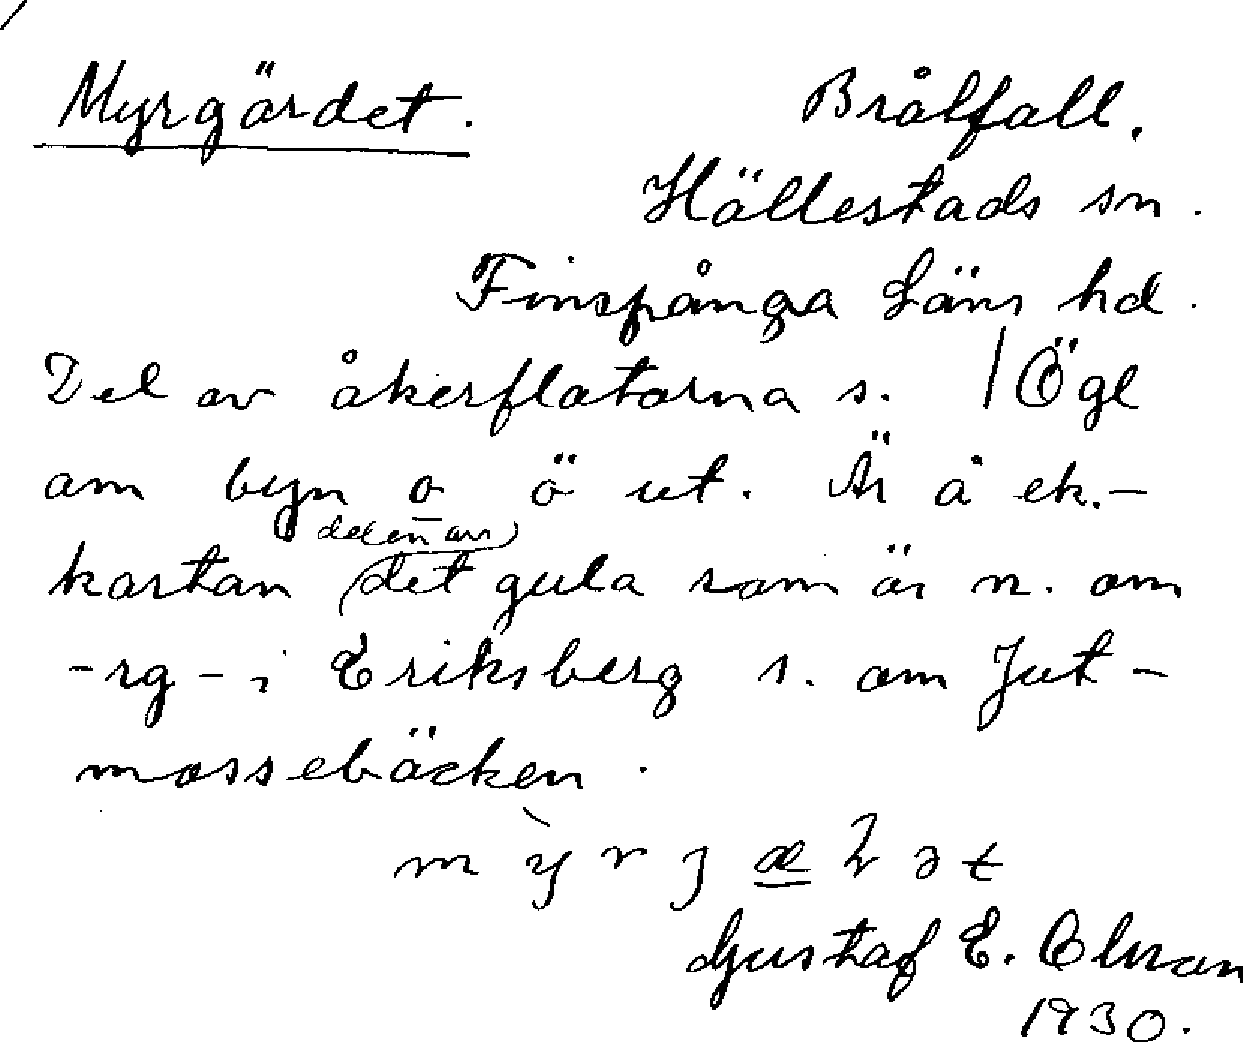 Myrgärdet.
Brålfall.
Hällestads sn.
Finspånga Läns hd.
Del av åkerflatorna s. / Ögl
om byn o ö ut. Är å ek.-
kartan det gula som är n. om
-rg- i Eriksberg s. om Jut-
mossebäcken.
Gustaf E. Olsson
1930.